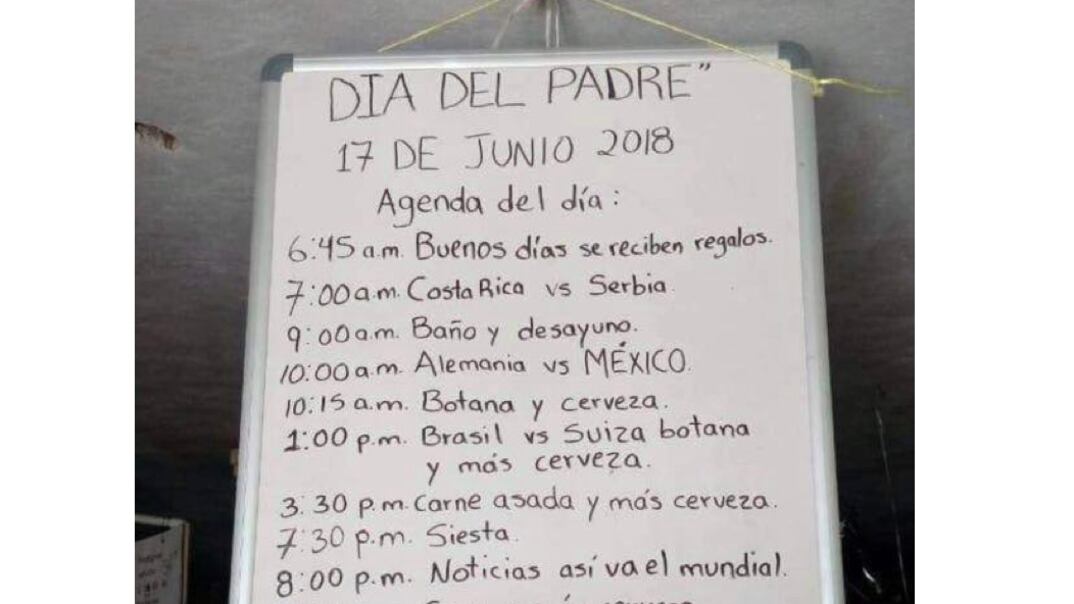 DIA DEL PADRE"
17 DE JUNIO 2018
Agenda del día:
6:45 a.m. Buenos días se reciben regalos.
7:00 a.m. Costa Rica vs Serbia
9:00 a.m. Baño y desayuno.
10:00 a.m. Alemania vs MÉXICO.
10:15 a.m. Botana y cerveza.
1:00 p.m. Brasil vs Suiza botana
y más cerveza.
3:30 p.m. Carne asada y más cerveza.
7:30 p.m. Siesta.
8:00 p.m. Noticias así va el mundial.